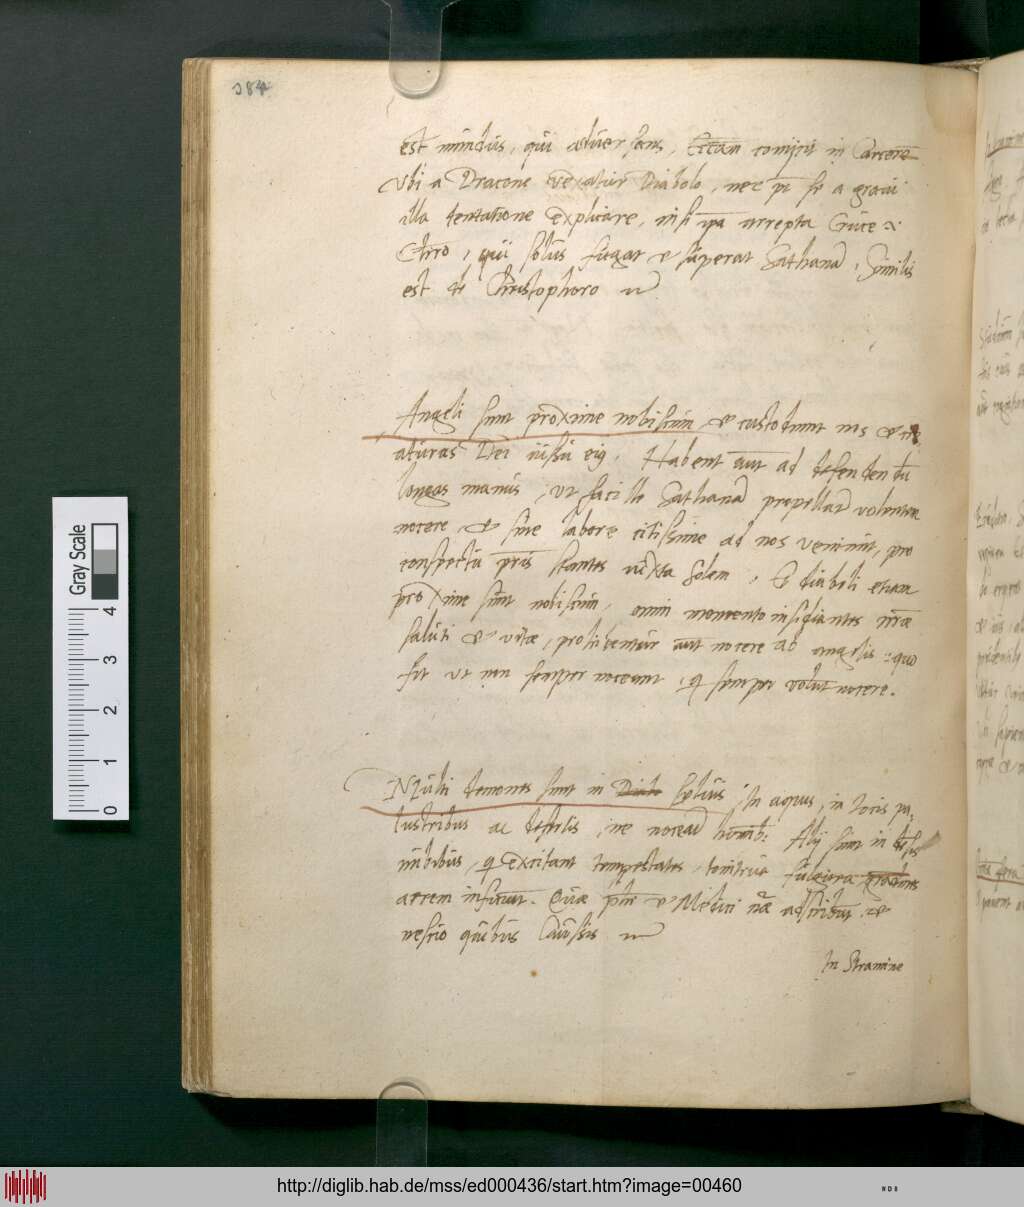 384
est mundus, qui adversans, Ecclãm comijcit in Carcerẽ
Vbi a Dracone vexatur Diabolo, nec põt se a gravi
illa tentatione explicare, nisi ipã arrepta Cruce a
Chro, qui solus fugat et superat Sathanã, Similis
est Christophoro
Angeli sunt proxime nobiscum et custodiunt nos et cre
aturas Dei iussu eiꝰ. Habent aũt ad defendendũ
longas manus, ut facile Sathanã propellãt volentem
nocere et sine labore citissime ad nos veniunt, pro
conspectu pr̃is stantes iuxta Solem. Et diaboli etiam
proxime sunt nobiscum, omni momento insidiantes nr̃ae
saluti et vitae, prohibentur aũt nocere ab angelis: quo
fit ut non semper noceant, qui semper volũt nocere.
Multi demones sunt in syluis, In aquis, in locis pa,
lustribus ac desertis, ne noceãt homib: Alij sunt in
nubibus, qui excitant tempestates, tonitrua fulgura grãdines
aerem inficiunt. Quae phi et Medici nãe adscribũt, et
nescio quibus Caussis
In Stramine
Gray Scale
4
3
2
1
0
http://diglib.hab.de/mss/ed000436/start.htm?image=00460